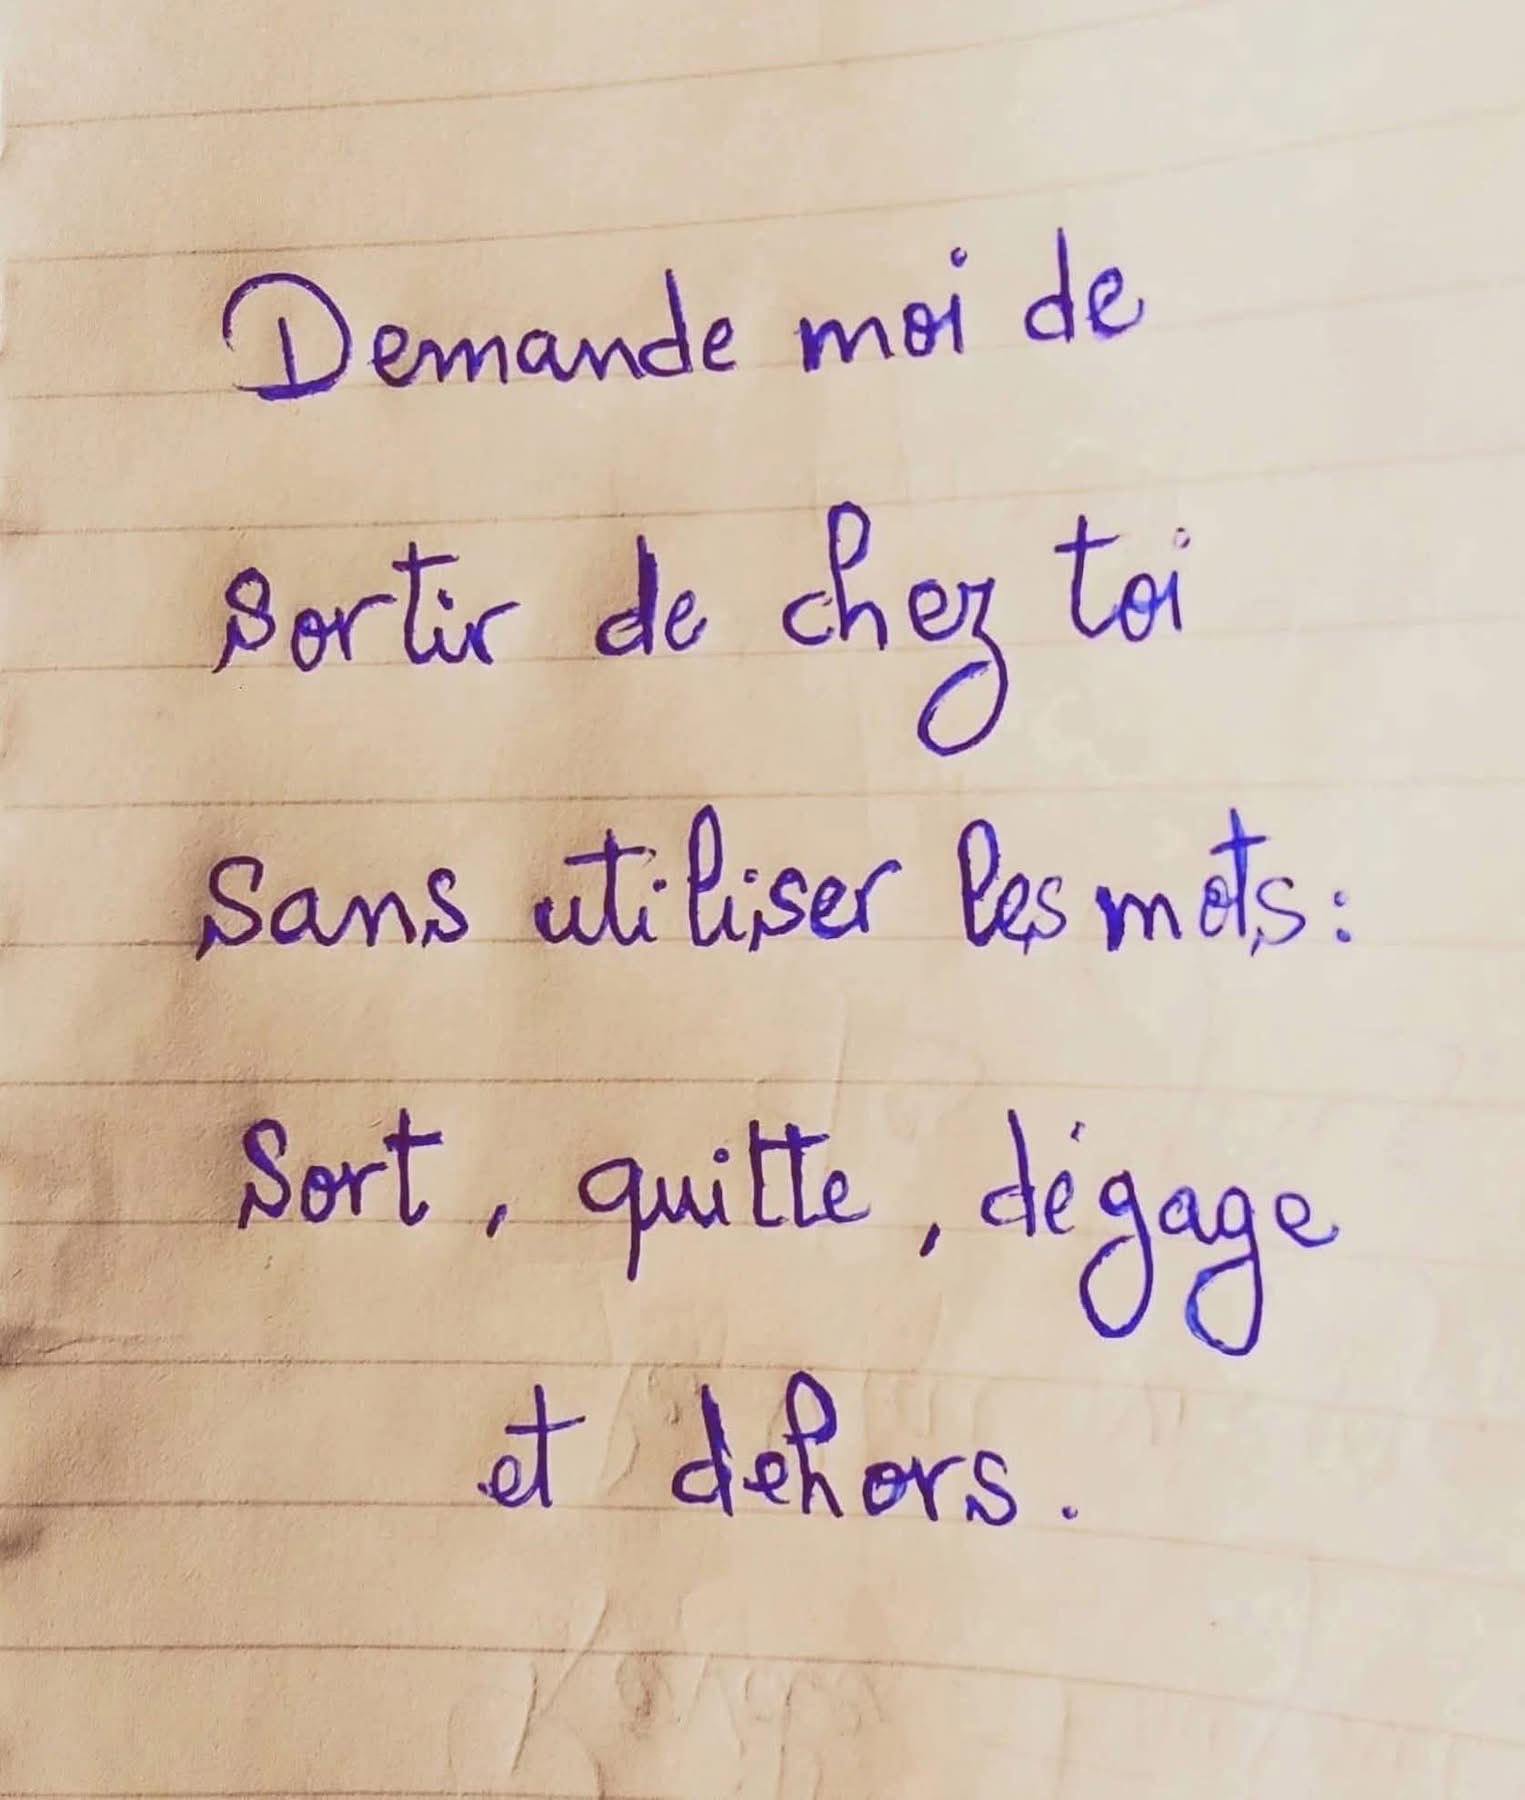 Demande moi de
sortir de chez toi
sans utiliser les mots:
Sort, quitte, dégage
et dehors.